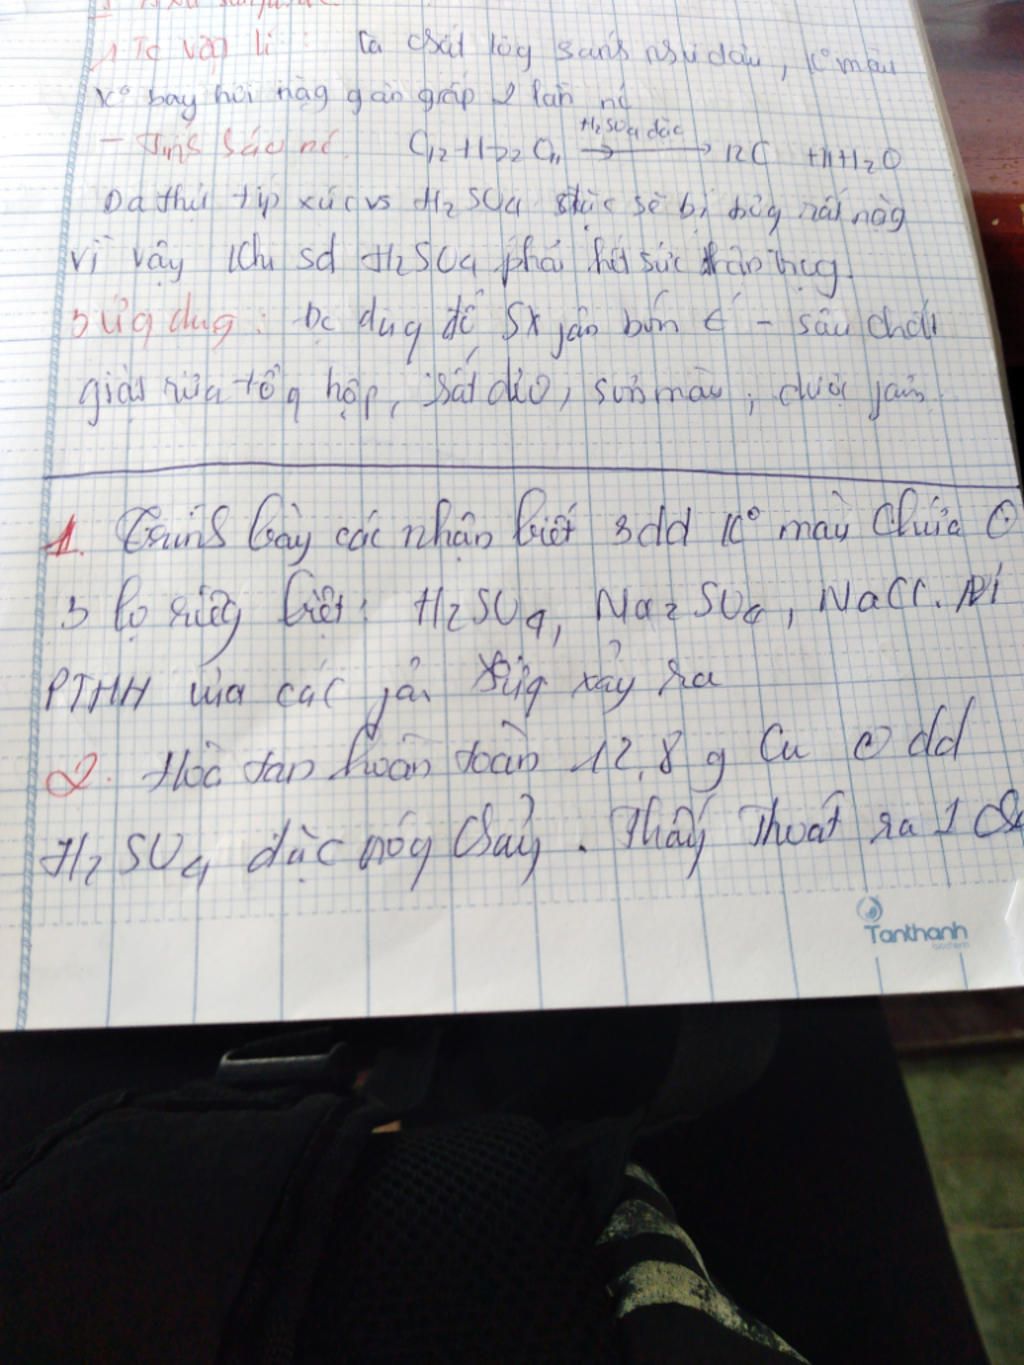 1 Tc vập lí : Là chất lỏg sánh như dầu, k° màu
k° bay hơi nặg gần gấp 2 lần nc
- Tính háo nc. C12H22O11 H2SO4 đặc → 12C + 11H2O
Da thịt tiếp xúc vs H2SO4 đặc sẽ bị bỏg rất nặg
vì vậy khi sd H2SO4 phải hết sức thận trọg.
3 ứg dụg : Đc dùg để SX phân bón
giặt rửa tổg hợp, chất dẻo, sơn màu, dược
1. Trình bày các nhận biết 3 dd k° màu chứa
3 lọ riêg biệt : H2SO4, Na2SO4, NaCl.
PTHH của các phản ứg xảy ra
2. Hòa tan hoàn toàn 12,8 g Cu dd
H2SO4 đặc nóg chảy. Thấy Thoát ra 1
Tanthanh